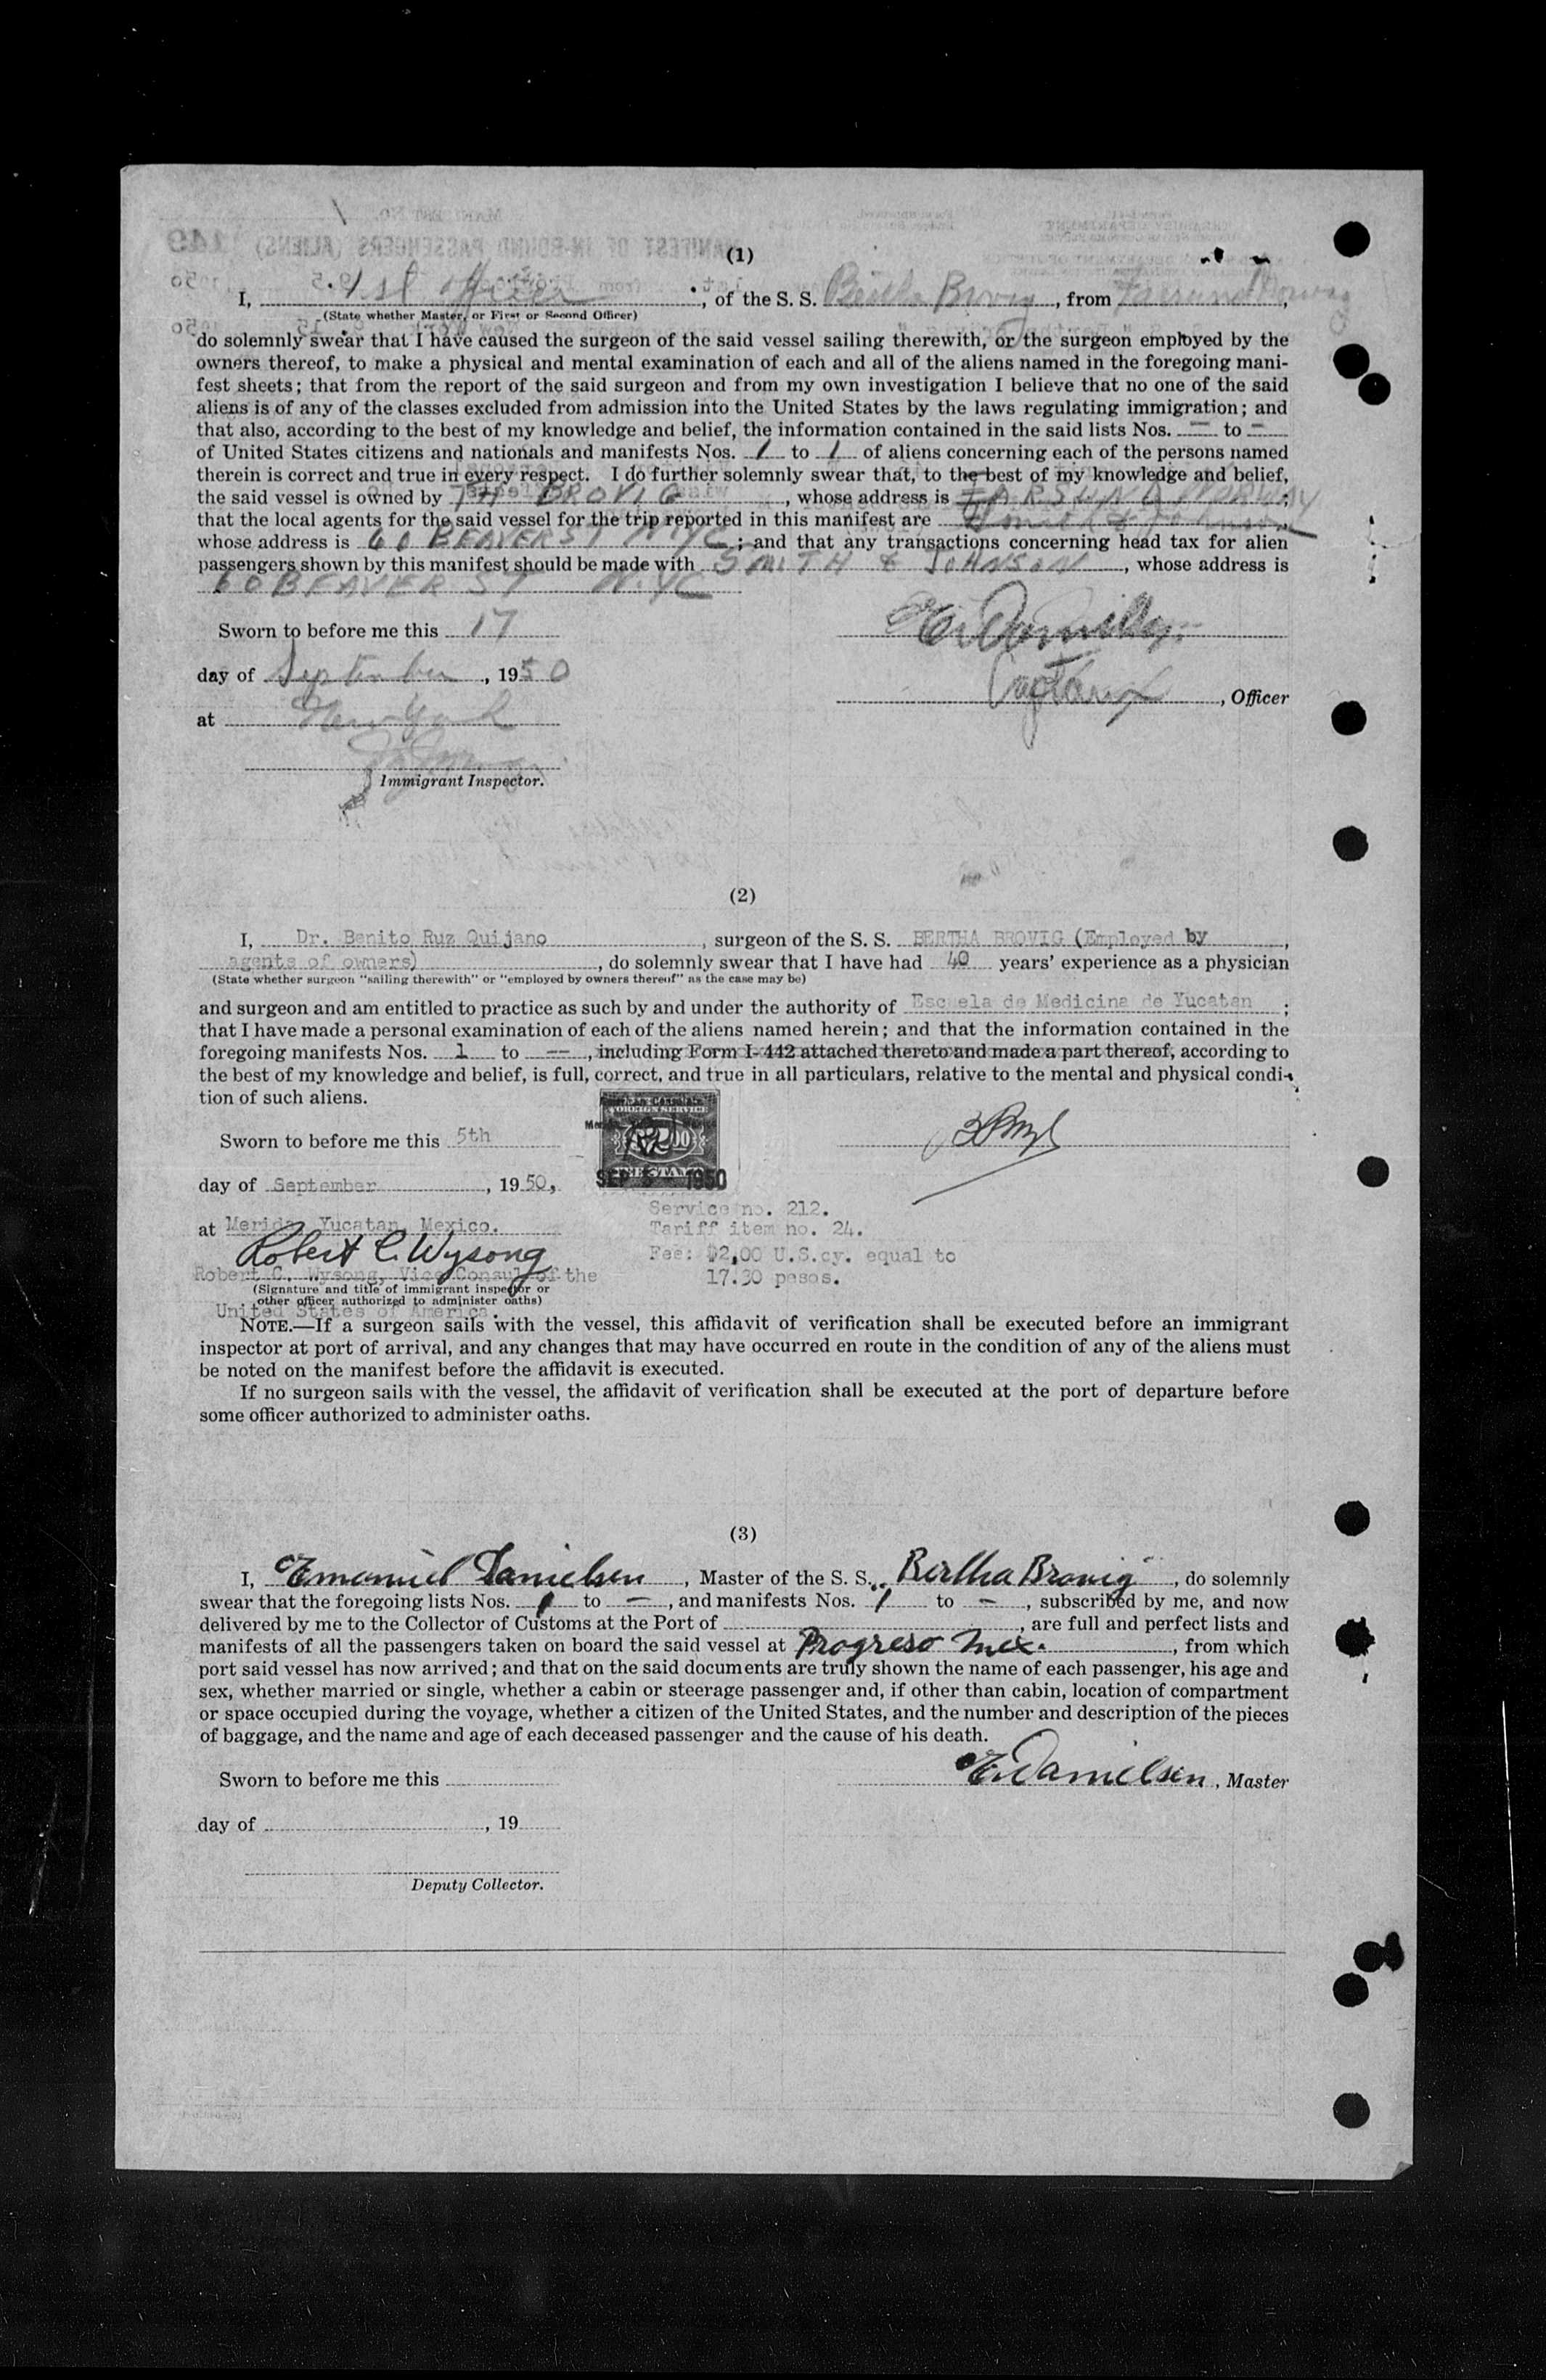 (1)
I, 1st officer, of the S. S. Bertha Brovig, from Farsund Norway,
(State whether Master, or First or Second Officer)
do solemnly swear that I have caused the surgeon of the said vessel sailing therewith, or the surgeon employed by the
owners thereof, to make a physical and mental examination of each and all of the aliens named in the foregoing mani-
fest sheets; that from the report of the said surgeon and from my own investigation I believe that no one of the said
aliens is of any of the classes excluded from admission into the United States by the laws regulating immigration; and
that also, according to the best of my knowledge and belief, the information contained in the said lists Nos. — to —
of United States citizens and nationals and manifests Nos. 1 to 1 of aliens concerning each of the persons named
therein is correct and true in every respect. I do further solemnly swear that, to the best of my knowledge and belief,
the said vessel is owned by TH BROVIG, whose address is FARSUND NORWAY;
that the local agents for the said vessel for the trip reported in this manifest are Smith & Johnson,
whose address is 60 BEAVER ST NYC; and that any transactions concerning head tax for alien
passengers shown by this manifest should be made with SMITH & JOHNSON, whose address is
60 BEAVER ST N.Y.C
Sworn to before me this 17
day of September, 1950
Captain, Officer
at New York
Immigrant Inspector.
(2)
I, Dr. Benito Ruz Quijano, surgeon of the S. S. BERTHA BROVIG (Employed by,
agents of owners), do solemnly swear that I have had 40 years' experience as a physician
(State whether surgeon "sailing therewith" or "employed by owners thereof" as the case may be)
and surgeon and am entitled to practice as such by and under the authority of Escuela de Medicina de Yucatan;
that I have made a personal examination of each of the aliens named herein; and that the information contained in the
foregoing manifests Nos. 1 to --, including Form I-442 attached thereto and made a part thereof, according to
the best of my knowledge and belief, is full, correct, and true in all particulars, relative to the mental and physical condi-
tion of such aliens.
American Consulate
FOREIGN SERVICE
FEE STAMP
SEP 5 - 1950
Sworn to before me this 5th
day of September, 1950,
at Merida, Yucatan, Mexico.
Service no. 212.
Tariff item no. 24.
Fee: $2.00 U.S.cy. equal to
17.30 pesos.
Robert C. Wysong
Robert C. Wysong, Vice Consul of the
(Signature and title of immigrant inspector or
other officer authorized to administer oaths)
United States of America.
NOTE.—If a surgeon sails with the vessel, this affidavit of verification shall be executed before an immigrant
inspector at port of arrival, and any changes that may have occurred en route in the condition of any of the aliens must
be noted on the manifest before the affidavit is executed.
If no surgeon sails with the vessel, the affidavit of verification shall be executed at the port of departure before
some officer authorized to administer oaths.
(3)
I, Emanuel Danielsen, Master of the S. S. Bertha Brovig, do solemnly
swear that the foregoing lists Nos. 1 to —, and manifests Nos. 1 to —, subscribed by me, and now
delivered by me to the Collector of Customs at the Port of , are full and perfect lists and
manifests of all the passengers taken on board the said vessel at Progreso Mex., from which
port said vessel has now arrived; and that on the said documents are truly shown the name of each passenger, his age and
sex, whether married or single, whether a cabin or steerage passenger and, if other than cabin, location of compartment
or space occupied during the voyage, whether a citizen of the United States, and the number and description of the pieces
of baggage, and the name and age of each deceased passenger and the cause of his death.
E. Danielsen, Master
Sworn to before me this
day of , 19
Deputy Collector.